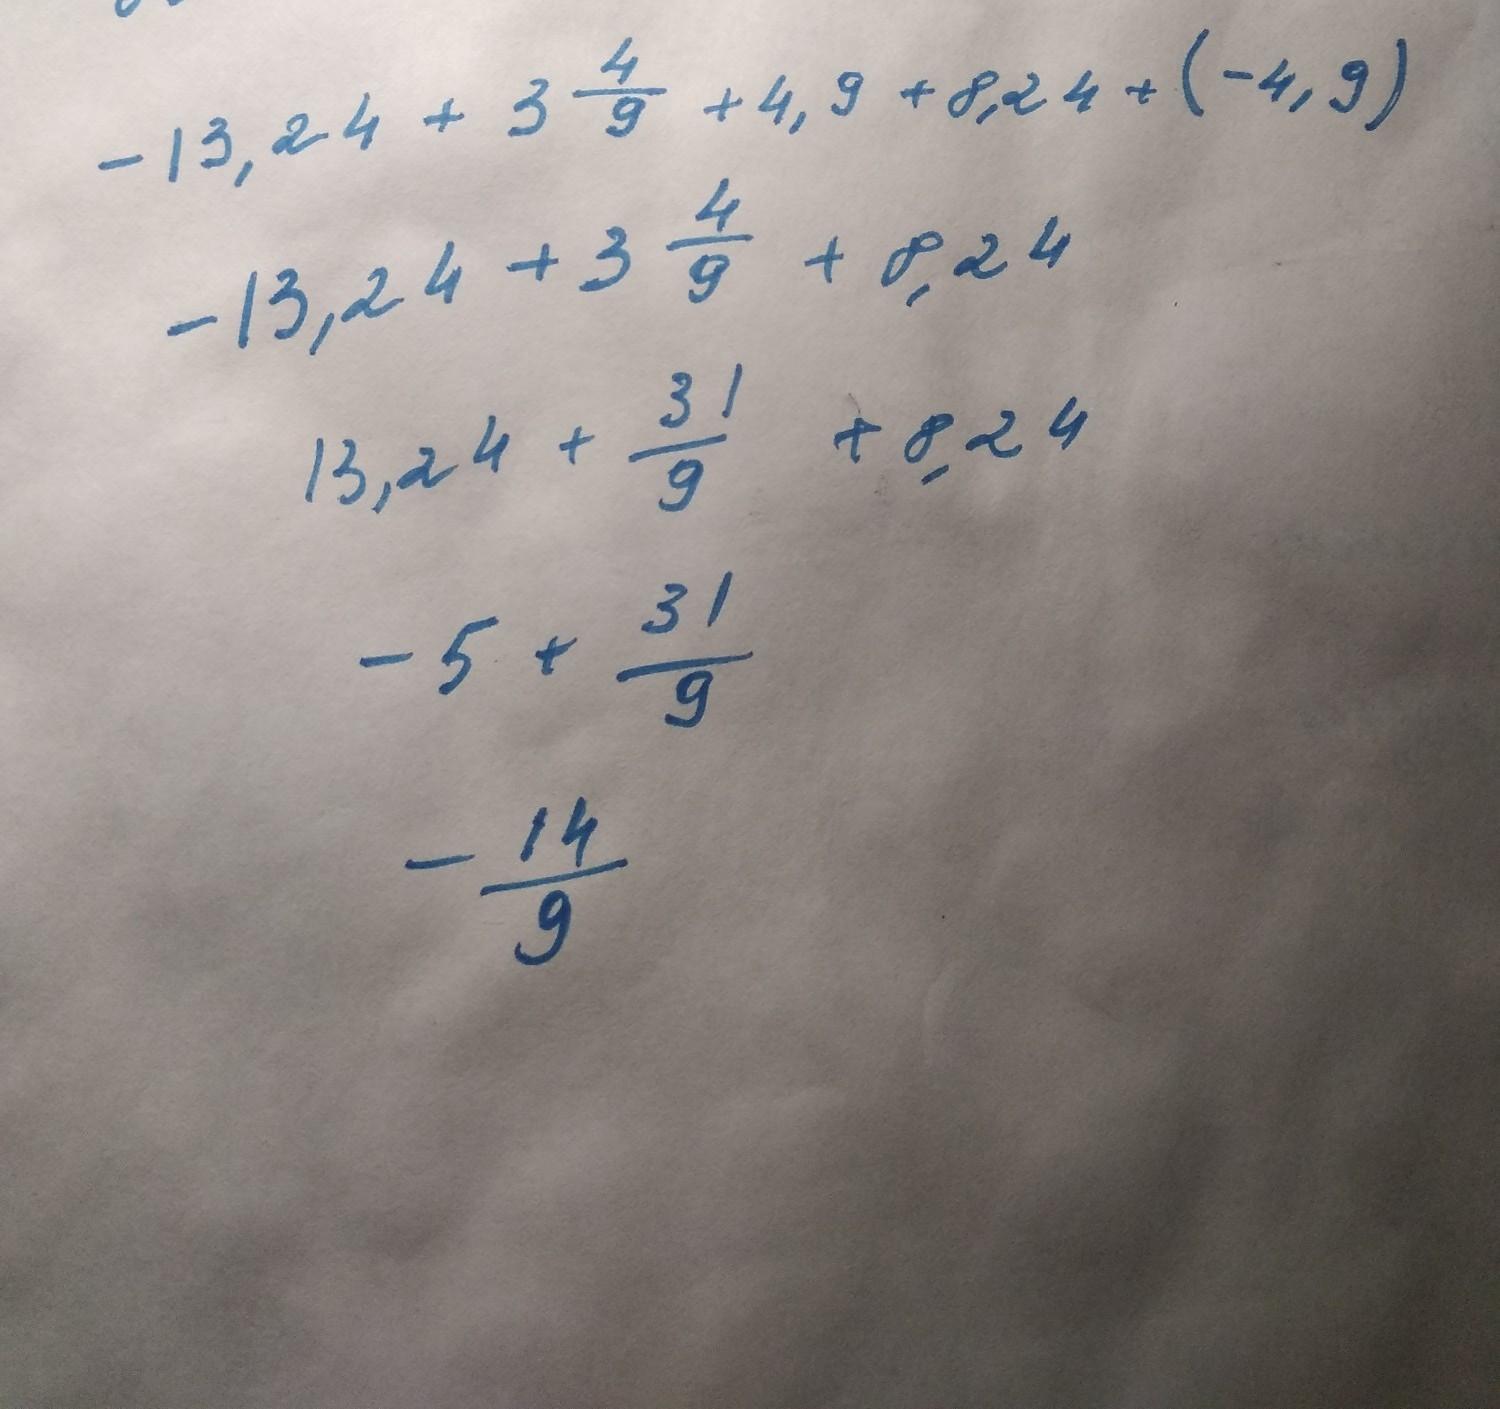 -13,24 + 3 4/9 + 4,9 + 8,24 + (-4,9)
-13,24 + 3 4/9 + 8,24
13,24 + 31/9 + 8,24
-5 + 31/9
-14/9